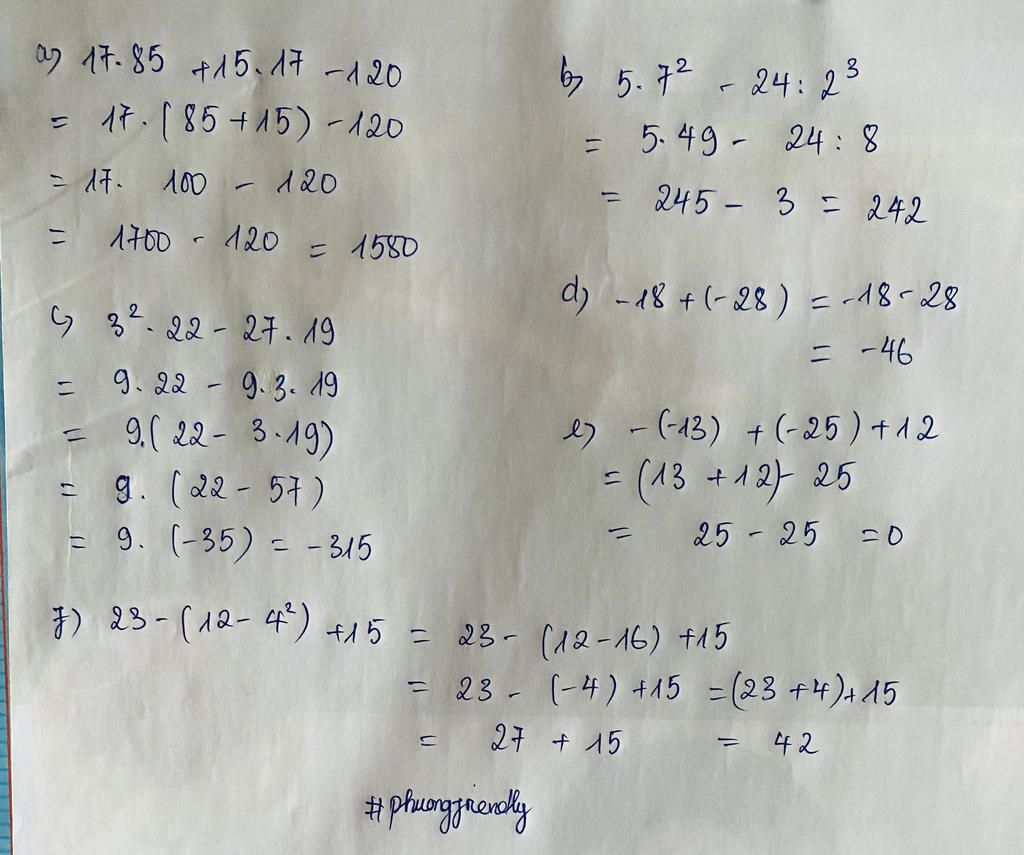 a) 17.85 + 15.17 - 120
= 17.(85 + 15) - 120
= 17. 100 - 120
= 1700 - 120 = 1580
b) 5.7² - 24 : 2³
= 5.49 - 24 : 8
= 245 - 3 = 242
c) 3².22 - 27.19
= 9.22 - 9.3.19
= 9.(22 - 3.19)
= 9.(22 - 57)
= 9.(-35) = -315
d) -18 + (-28) = -18 - 28
= -46
e) -(-13) + (-25) + 12
= (13 + 12) - 25
= 25 - 25 = 0
f) 23 - (12 - 4²) + 15 = 23 - (12 - 16) + 15
= 23 - (-4) + 15 = (23 + 4) + 15
= 27 + 15 = 42
#phuongfriendly